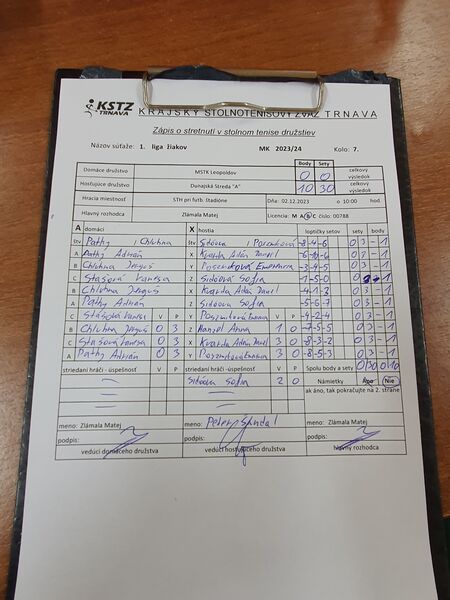 KSTZ
TRNAVA
KRAJSKÝ STOLNOTENISOVÝ ZVÄZ TRNAVA
Zápis o stretnutí v stolnom tenise družstiev
Názov súťaže: 1. liga žiakov MK 2023/24 Kolo: 7.
Body Sety
Domáce družstvo MSTK Leopoldov 0 0 celkový výsledok
Hosťujúce družstvo Dunajská Streda "A" 10 30 celkový výsledok
Hracia miestnosť STH pri futb. štadióne Dňa: 02.12.2023 o 10:00 hod.
Hlavný rozhodca Zlámala Matej Licencia: M A B C číslo: 00788
A domáci X hostia loptičky setov sety body
štv Pathy / Chlubna štv Sidoova / 8-4-6 0 3 - 1
A Pathy Adrián X Kvarda Adán Daniel 6-10-6 0 3 - 1
B Chlubna Y 3-4-5 0 3 - 1
C Stašová Vanesa Z Sidoova Sofia 1-5-0 0 3 - 1
B Chlubna X Kvarda Adán Daniel 4-1-2 0 3 - 1
A Pathy Adrián Z Sidoova Sofia 5-6-7 0 3 - 1
C Stašová Vanesa V P Y V P 9-2-4 0 3 - 1
B Chlubna 0 3 Z 1 0 7-5-5 0 3 - 1
C Stašová Vanesa 0 3 X Kvarda Adán Daniel 3 0 8-3-2 0 3 - 1
A Pathy Adrián 0 3 Y 3 0 8-5-3 0 3 - 1
striedaní hráči - úspešnosť V P striedaní hráči - úspešnosť V P Spolu body a sety 0 30 0 10
Sidoova Sofia 2 0 Námietky Áno Nie
ak áno, tak pokračujte na 2. strane
meno: Zlámala Matej meno: Peter meno: Zlámala Matej
podpis: podpis: podpis:
vedúci domáceho družstva vedúci hosťujúceho družstva hlavný rozhodca